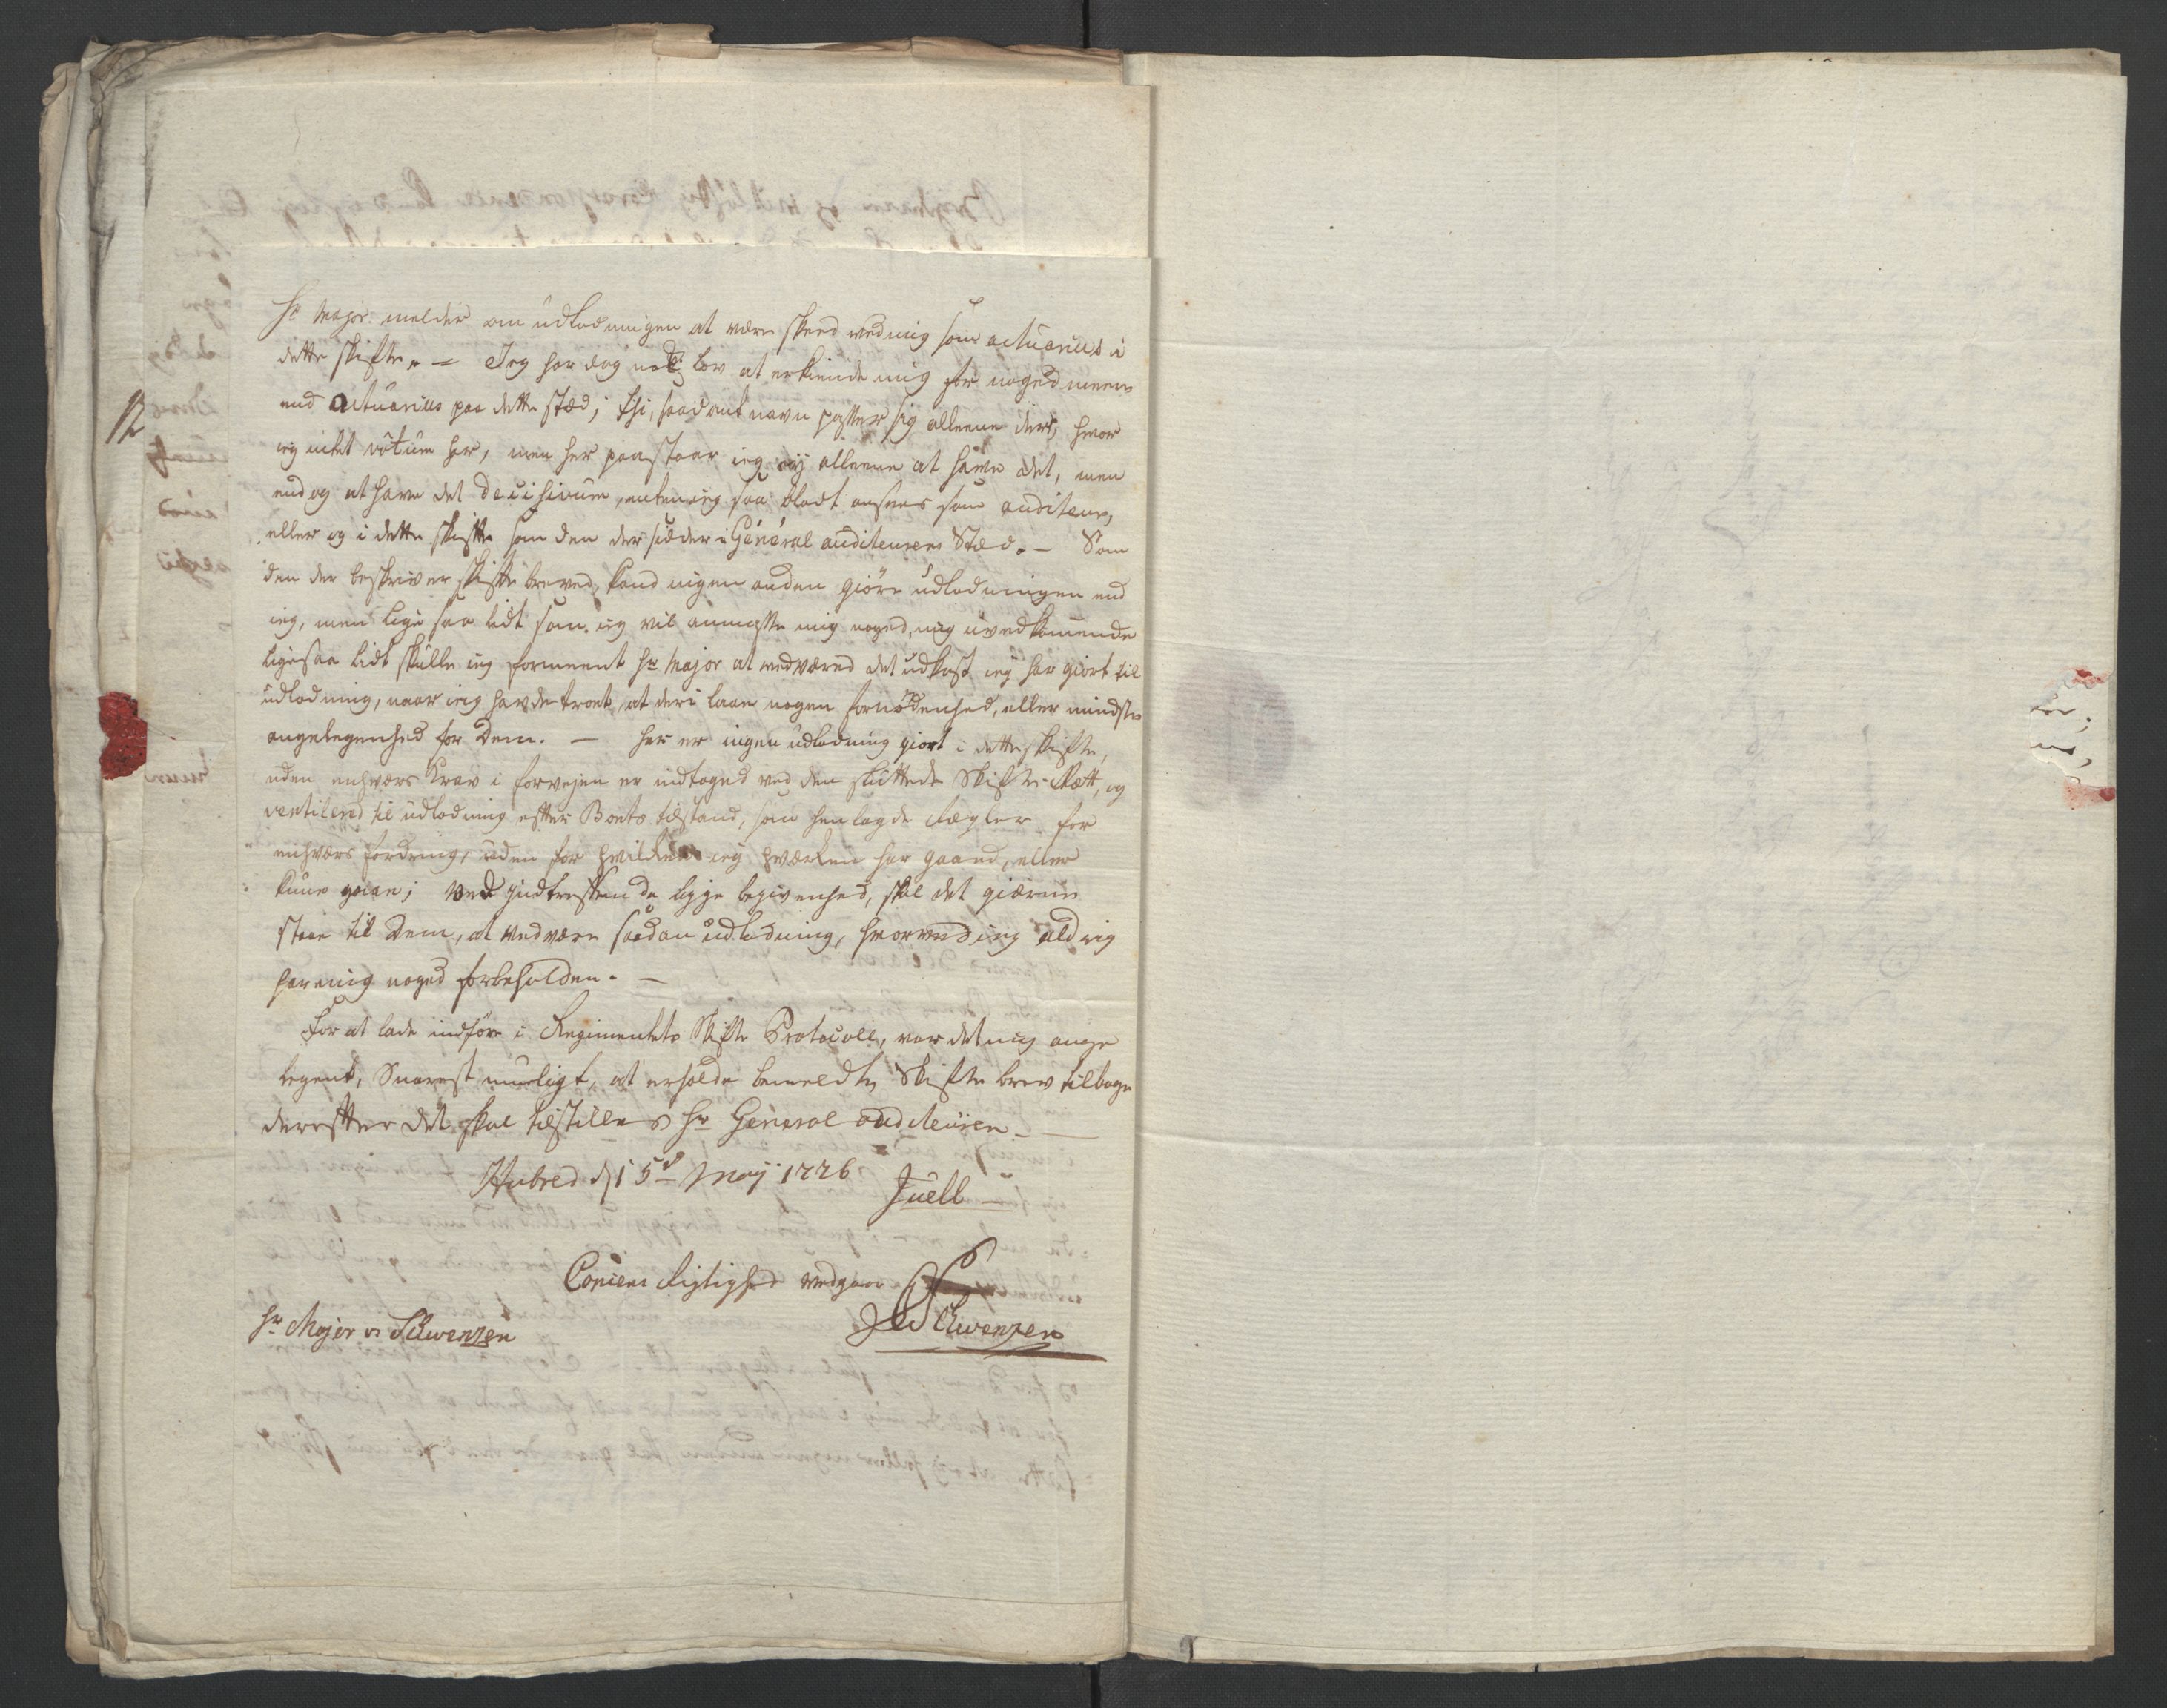 Hr Major melder om udlodningen at være skeed ved mig som actuarius i
dette skifte. — Jeg har dog nok lov at erkiende mig for noged meere
end actuarius paa dette stæd; thi, saadant navn passer sig alleene der, hvor
ieg intet votum har, men her paastaar ieg ey alleene at have det, men
end og at have det decisivum, enten ieg saa blodt ansees som auditeur,
eller og i dette skifte som den der sidder i General auditeurens Stæd. — Som
den der beskriver skifte breved, kand ingen anden giöre udlodningen end
ieg, men lige saa lidt som ieg vil anmasse mig noged, mig uvedkomende
ligesaa lidt skulle ieg formeent Hr Major at vedværed det udkast ieg har giort til
udlodning, naar ieg havde troet, at deri laae nogen fornödenhed, eller mindste
angelegenhed for Dem. — her er ingen udlodning giort i dette skifte,
uden enhvers Krav i forvejen er indtaged ved den sluttede Skifte-Rætt, og
ventilered til udlodning efter Boets tilstand, som henlagde Regler for
enhvers fordring, uden for hvilken ieg hverken har gaaed, eller
kune gaae; ved indtreffende lige begivenhed, skal det gierne
staae til Dem, at vedvære saadan udlodning, hvorved ieg aldrig
har mig noged forbeholden. —
For at lade indföre i Regimentets Skifte Protocoll, var det mig ange
legent, Snarest mueligt, at erholde bemeldte Skifte brev tilbage
derefter det skal tilstilles Hr General auditeuren —
Hubred d 15de Maj 1776
Juell —
Copiens Rigtighed vedgaar
Schwenzen
Hr Major v Schwenzen
12